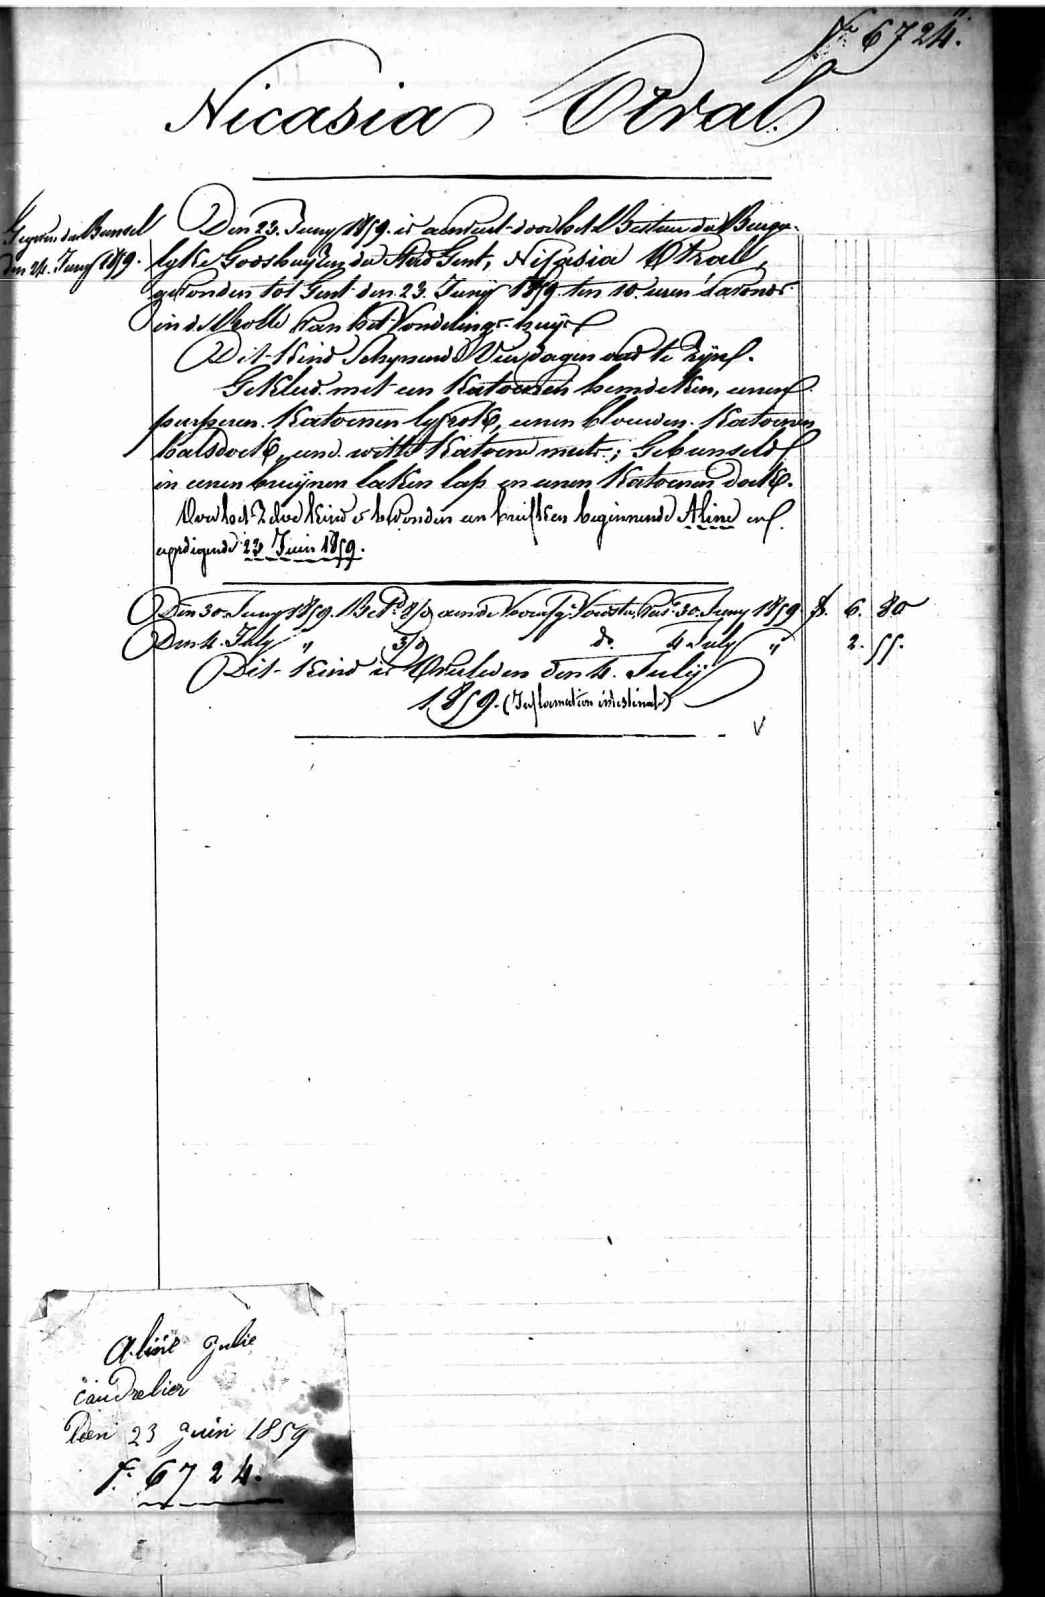 Nr 6724.
Nicasia Otral.
Gegeven den Bunsel
den 24. Juny 1859.
Den 23. Juny 1859. is aenveerd door het Bestuer der Burger-
lyke Godshuyzen der Stad Gent, Nicasia Otral,
gevonden tot Gent den 23. Juny 1859. ten 10. uren 's avonds
in de Rolle van het Vondelings-huys
Dit Kind Schynende Vier dagen oud te zyn.
Gekleed met een Katoenen hemdeken, eenen
purperen Katoenen lyfrok, eenen blauwen Katoenen
halsdoek, eene witte Katoene muts; Gebunseld
in eenen bruynen laken lap en eenen Katoenen doek.
Over het zelve kind is bevonden een briefken beginnende Aline en
eyndigende 23 Juin 1859.
Den 30. Juny 1859. Bet. 8/d aen de Voedster 30. Juny 1859 fr. 6. 80
Den 4. July " 3/d do. 4 July " 2. 55.
Dit Kind is Overleden den 4. July
1859. (Inflammation intestinale)
V
Aline Julie
Caudrelier
Den 23 Juin 1859
f. 6724.